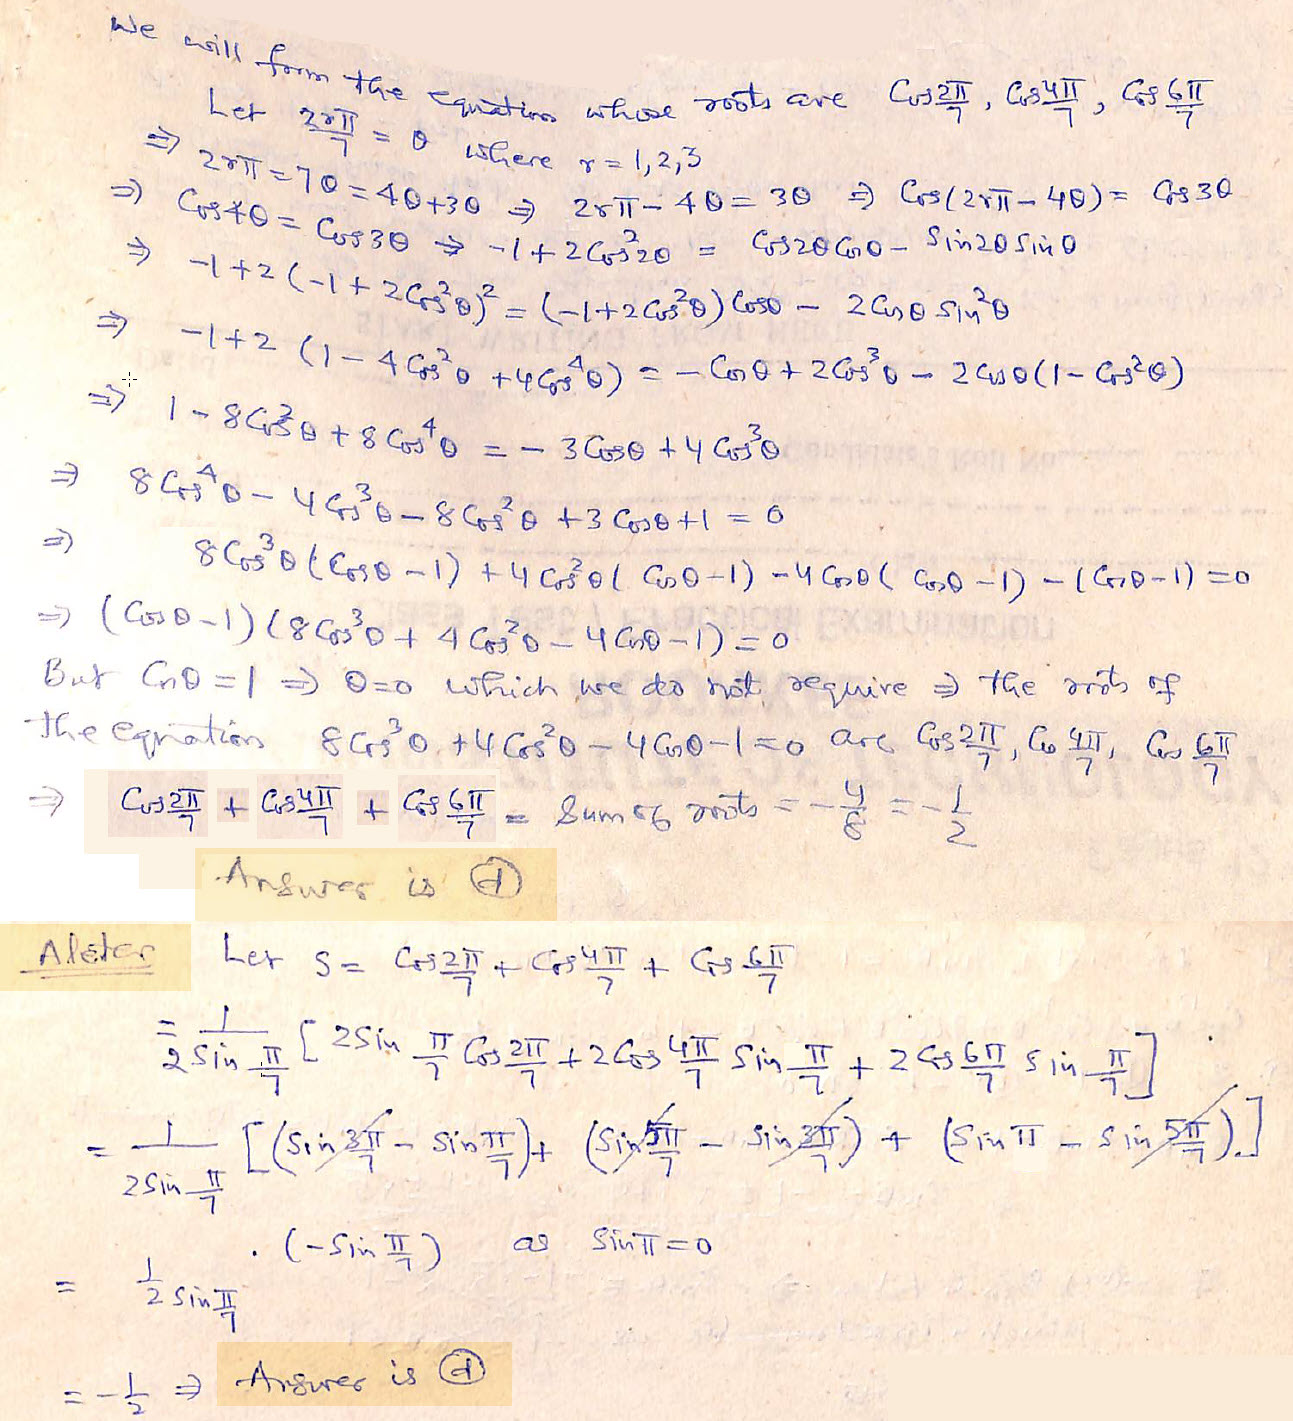 We will form the equation whose roots are Cos 2π/7, Cos 4π/7, Cos 6π/7
Let 2rπ/7 = θ where r = 1,2,3
⇒ 2rπ = 7θ = 4θ+3θ ⇒ 2rπ - 4θ = 3θ ⇒ Cos(2rπ - 4θ) = Cos3θ
⇒ Cos4θ = Cos3θ ⇒ -1 + 2Cos²2θ = Cos2θ Cosθ - Sin2θ Sinθ
⇒ -1+2(-1+2Cos²θ)² = (-1+2Cos²θ) Cosθ - 2Cosθ Sin²θ
⇒ -1+2 (1 - 4Cos²θ + 4Cos⁴θ) = - Cosθ + 2Cos³θ - 2Cosθ(1 - Cos²θ)
⇒ 1 - 8Cos²θ + 8Cos⁴θ = - 3Cosθ + 4Cos³θ
⇒ 8Cos⁴θ - 4Cos³θ - 8Cos²θ + 3Cosθ + 1 = 0
⇒ 8Cos³θ(Cosθ - 1) + 4Cos²θ(Cosθ - 1) - 4Cosθ(Cosθ - 1) - (Cosθ - 1) = 0
⇒ (Cosθ - 1)(8Cos³θ + 4Cos²θ - 4Cosθ - 1) = 0
But Cosθ = 1 ⇒ θ=0 which we do not require ⇒ the roots of
the equation 8Cos³θ + 4Cos²θ - 4Cosθ - 1 = 0 are Cos 2π/7, Cos 4π/7, Cos 6π/7
⇒ Cos 2π/7 + Cos 4π/7 + Cos 6π/7 = Sum of roots = - 4/8 = - 1/2
Answer is ⓓ
Alster Let S = Cos 2π/7 + Cos 4π/7 + Cos 6π/7
= 1/(2 Sin π/7) [2Sin π/7 Cos 2π/7 + 2Cos 4π/7 Sin π/7 + 2Cos 6π/7 Sin π/7]
= 1/(2Sin π/7) [(Sin 3π/7 - Sin π/7) + (Sin 5π/7 - Sin 3π/7) + (Sin π - Sin 5π/7).]
= 1/(2 Sin π/7) . (-Sin π/7) as Sin π = 0
= - 1/2 ⇒ Answer is ⓓ